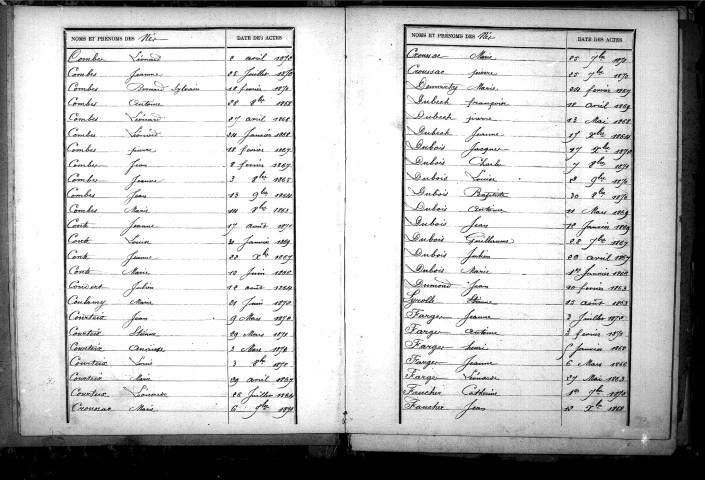 NOMS ET PRÉNOMS DES Nés DATE DES ACTES
Combe Léonard 2 avril 1870
Combes Jeanne 25 Juillet 1870
Combes Sylvain 12 fevrier 1870
Combes Antoine 28 8bre 1868
Combes Léonard 27 avril 1868
Combes Léonard 24 Janvier 1868
Combes pierre 18 fevrier 1867
Combes Jean 8 fevrier 1867
Combes Jeanne 3 1865
Combes Jean 13 9bre 1864
Combes Marie 14 1863
Conte Jeanne 17 août 1871
Conte Louise 30 Janvier 1869
Conte Jeanne 22 Xbre 1867
Conte Marie 10 Juin
Julien 12 août 1864
Marie 21 Juin 1870
Courteix Jean 9 Mars 1870
Courteix Etienne 29 Mars 1871
Courteix 2 Mars 1870
Courteix Louis 3 8bre 1870
Courteix Marie 29 avril 1867
Courteix Léonarde 25 Juillet 1864
Croussac Marie 6 9bre 1871
NOMS ET PRÉNOMS DES Nés DATE DES ACTES
Croussac Marie 25 7bre 1871
Croussac pierre 25 7bre 1870
Marie 24 fevrier 1867
Dubech françoise 18 avril 1869
Dubech pierre 13 Mai 1868
Dubech Jeanne 17 1864
Dubois Jacques 27 Xbre 1870
Dubois Charles 7 8bre 1871
Dubois Louise 2 9bre 1870
Dubois Baptiste 30 8bre 1870
Dubois Antoine 11 Mars 1869
Dubois Jean 19 Janvier 1869
Dubois Guillaume 28 7bre 1867
Dubois Julien 20 avril 1867
Dubois Marie 1er Janvier 1862
Dumond Jean 10 fevrier 1863
Eyrolle Etienne 15 août 1863
Farge Jeanne 3 Juillet 1870
Farge Antoine 3 fevrier 1871
Farge henri 5 Janvier 1868
Farge Jeanne 6 Mars 1866
Farge Léonarde 27 Mai 1863
Faucher Catherine 1er 7bre 1870
Faucher Jean 12 Xbre 1868